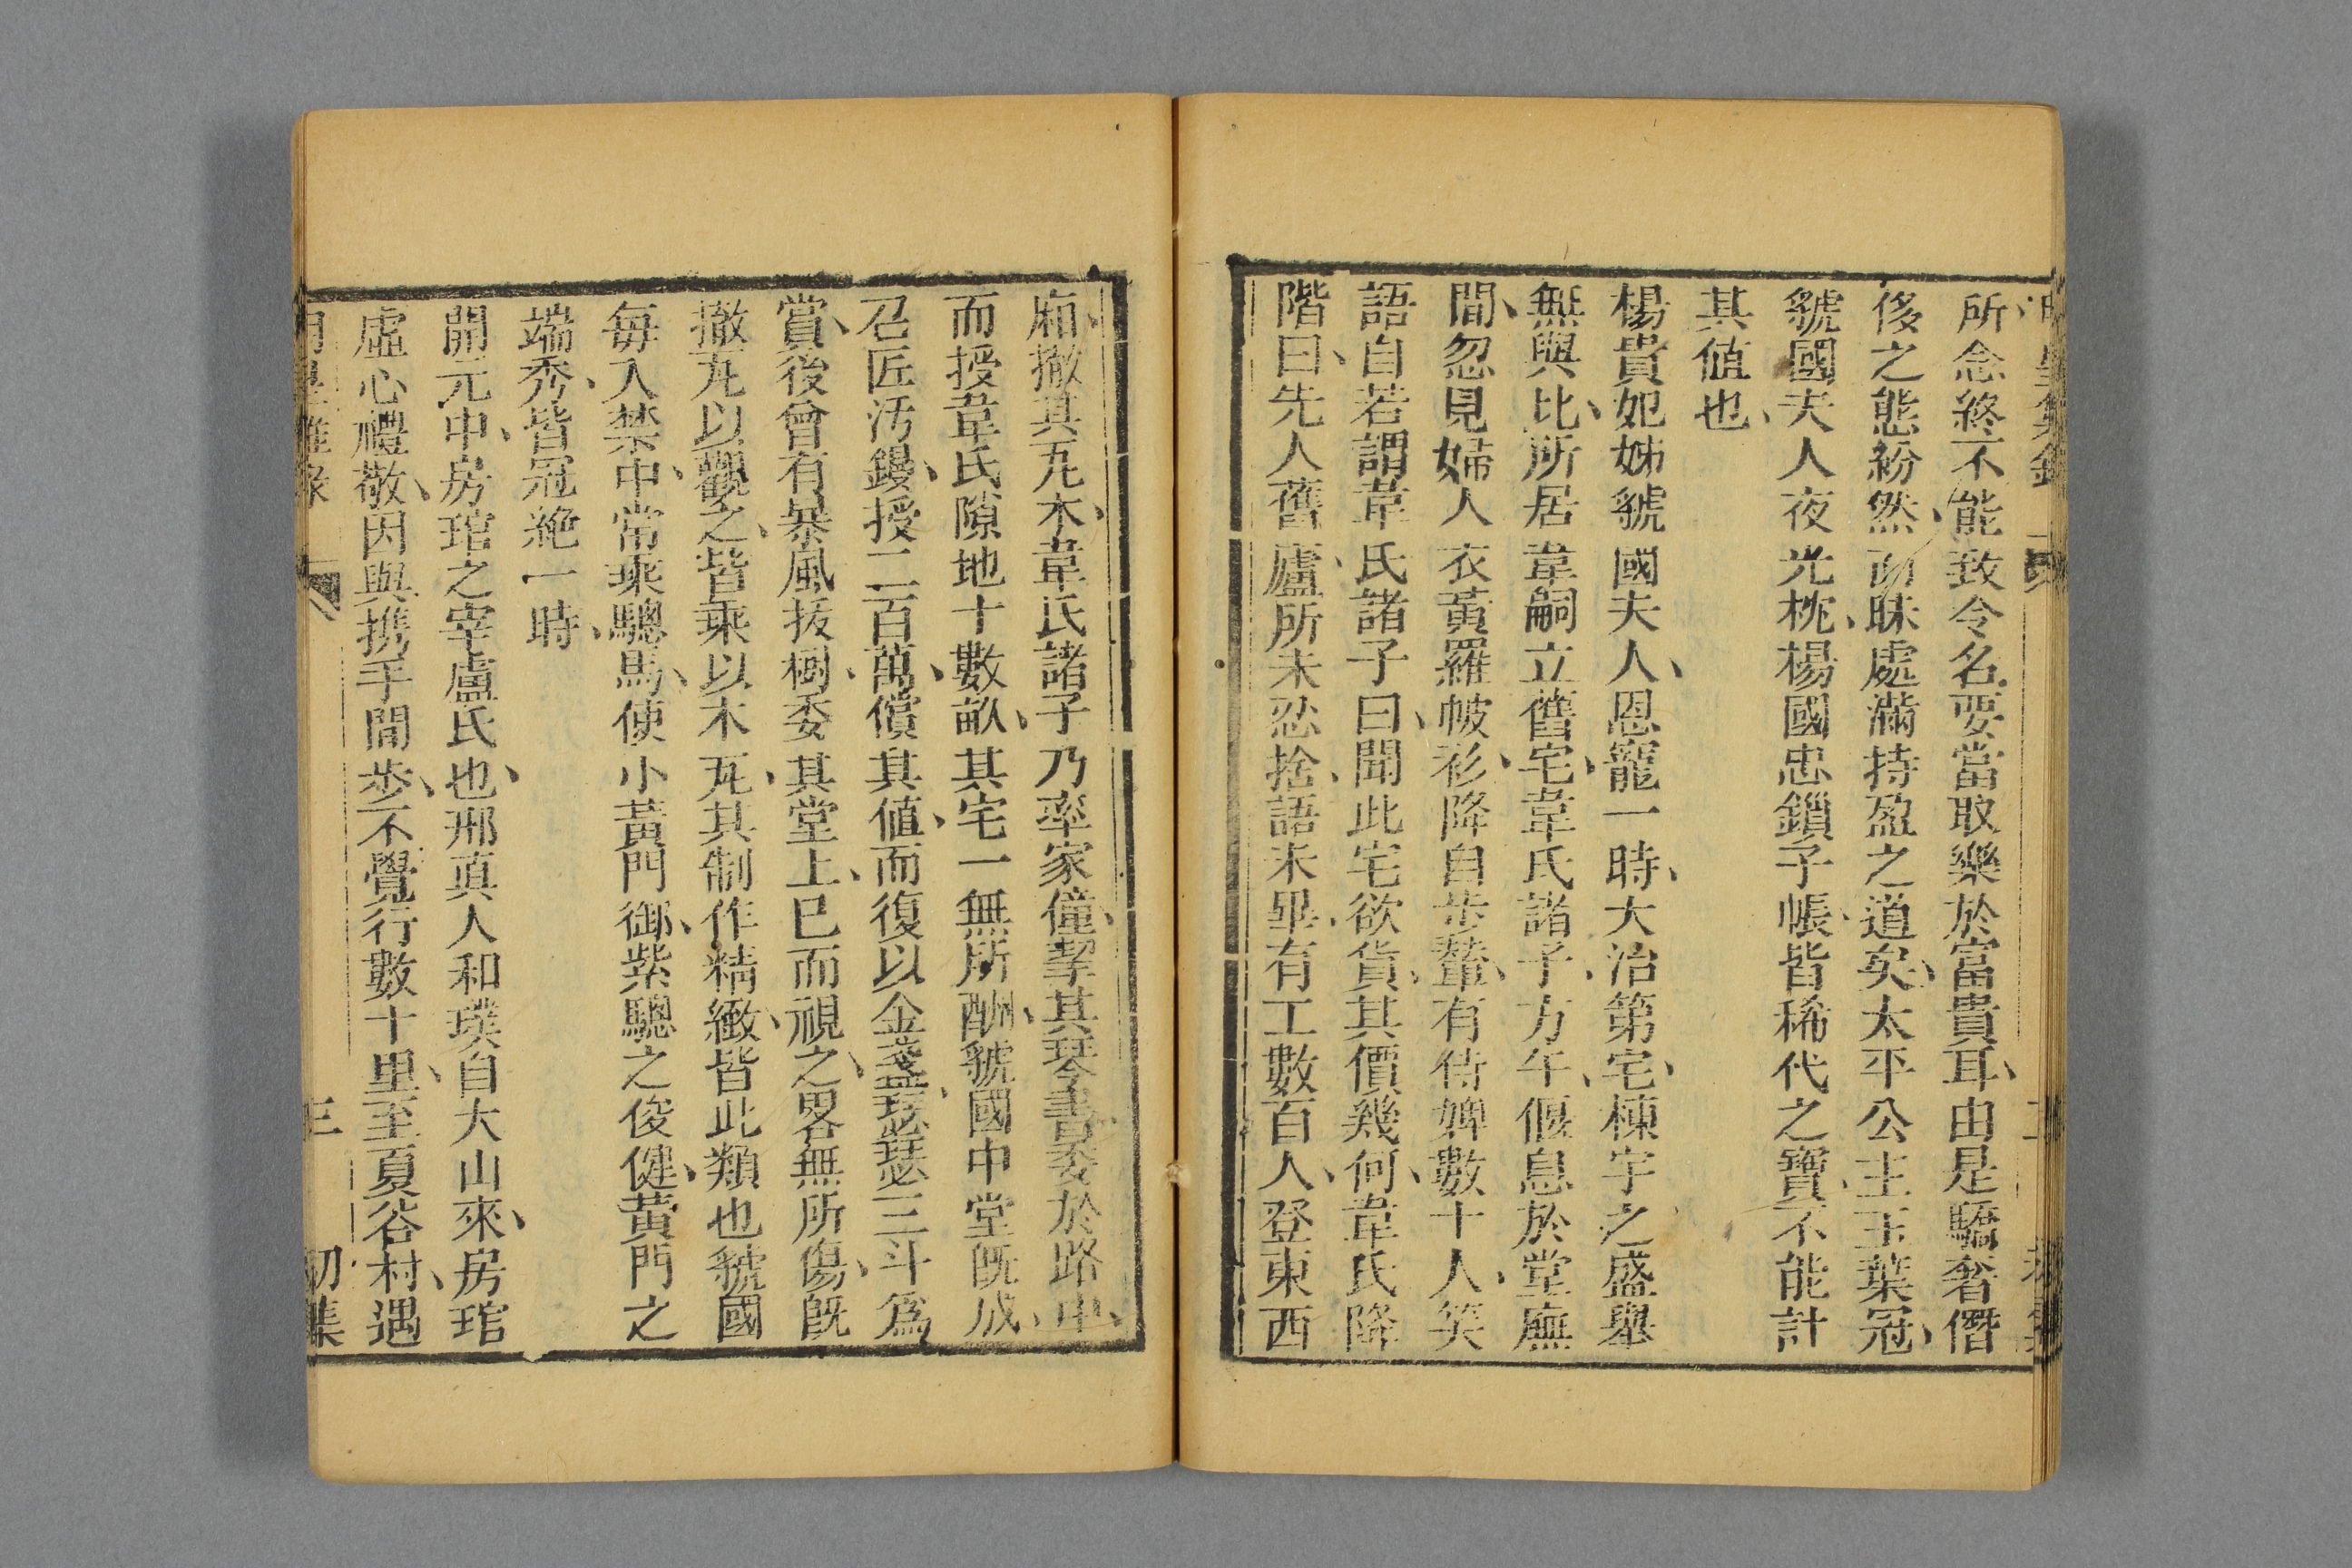 所念終不能致令名要當取樂於富貴耳由是驕奢僭
侈之態紛然而昧處滿持盈之道矣太平公主玉葉冠
虢國夫人夜光枕楊國忠鎖子帳皆稀代之寶不能計
其值也
楊貴妃姊虢國夫人恩寵一時大治第宅棟宇之盛舉
無與比所居韋嗣立舊宅韋氏諸子方午偃息於堂廡
間忽見婦人衣黃羅帔衫降自步輦有侍婢數十人笑
語自若謂韋氏諸子曰聞此宅欲貨其價幾何韋氏降
階曰先人舊廬所未忍捨語未畢有工數百人登東西
廂撤其瓦木韋氏諸子乃率家僮挈其琴書委於路中
而授韋氏隙地十數畝其宅一無所酬虢國中堂既成
召匠汚鏝授二百萬償其值而復以金盞瑟瑟三斗爲
賞後曾有暴風拔樹委其堂上已而視之畧無所傷旣
撤瓦以觀之皆乘以木瓦其制作精緻皆此類也虢國
每入禁中常乘驄馬使小黃門御紫驄之俊健黃門之
端秀皆冠絶一時
開元中房琯之宰盧氏也邢真人和璞自大山來房琯
虛心禮敬因與携手閒歩不覺行數十里至夏谷村遇
明皇雜錄 三 初集